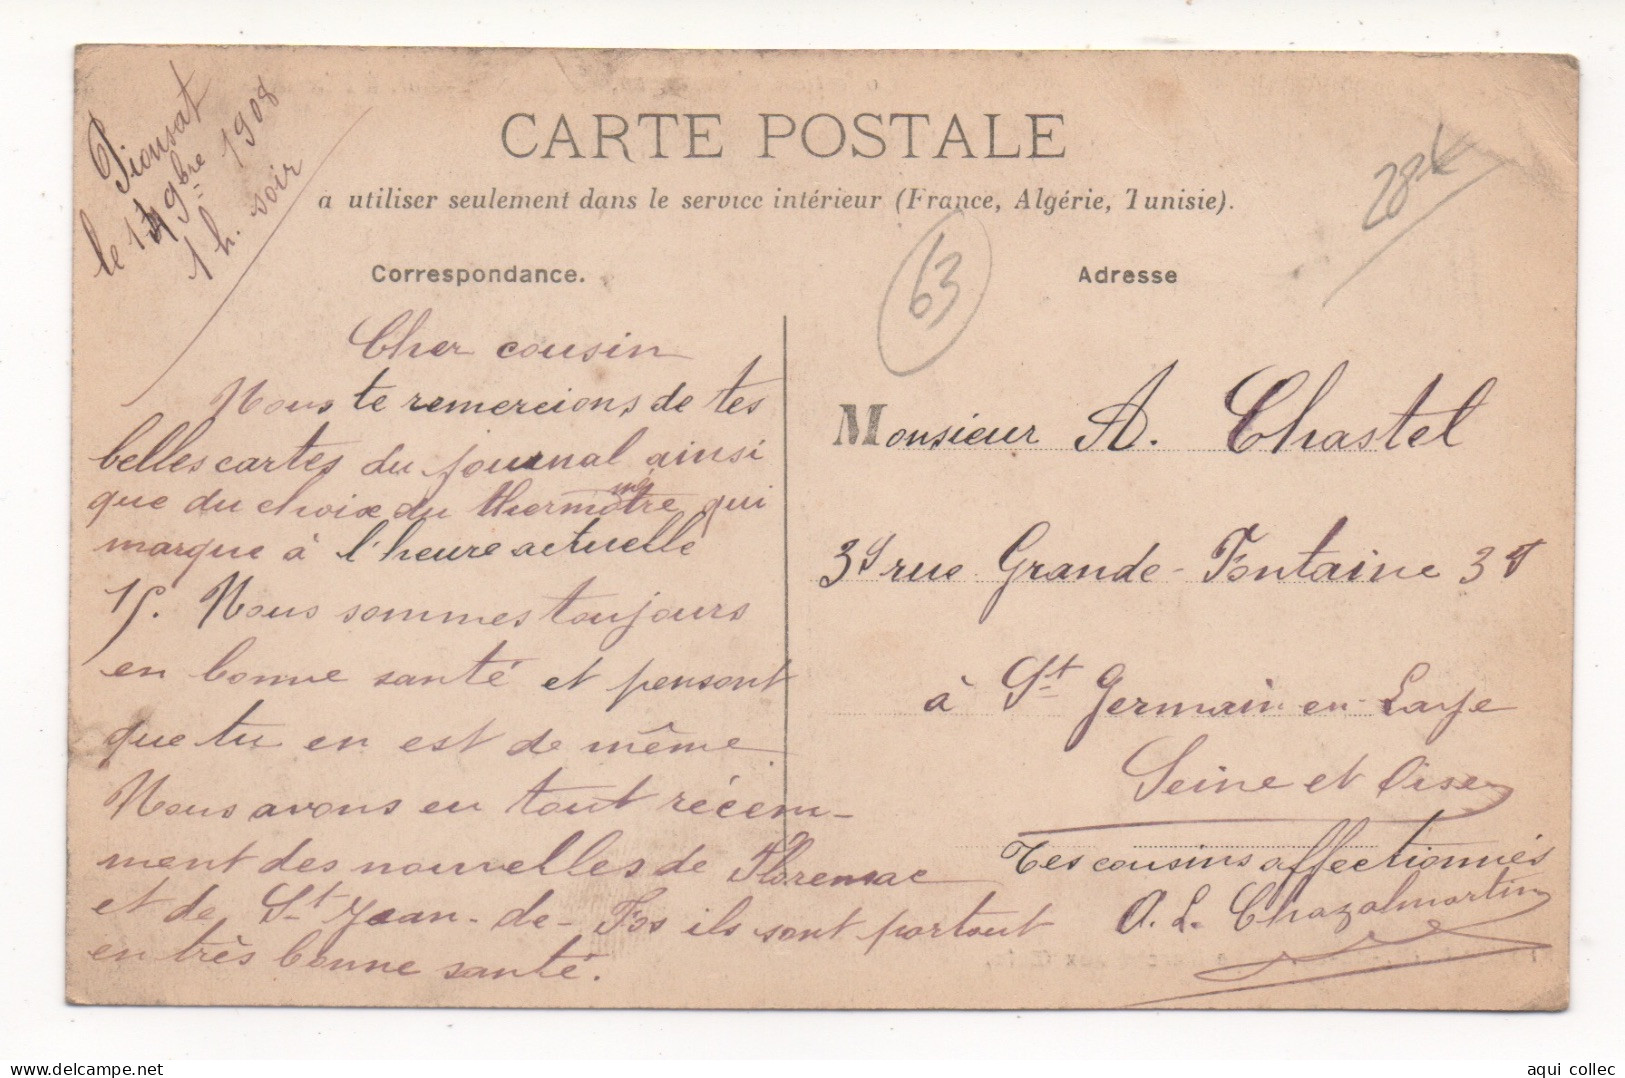 Pionsat
le 14 9bre 1908
1 h. soir
CARTE POSTALE
a utiliser seulement dans le service intérieur (France, Algérie, Tunisie).
28k
63
Correspondance.
Cher cousin
Nous te remercions de tes
belles cartes du journal ainsi
que du choix du thermomètre qui
marque à l'heure actuelle
15. Nous sommes toujours
en bonne santé et pensont
que tu en est de même.
Nous avons eu tout récem-
ment des nouvelles de Florensac
et de St Jean-de-Fos ils sont partout
en très bonne santé.
Adresse
Monsieur A. Chastel
rue Grande-Fontaine
à St Germain-en-Laye
Seine et Oise
Tes cousins affectionnés
A. L. Chazalmartin
aqui collec